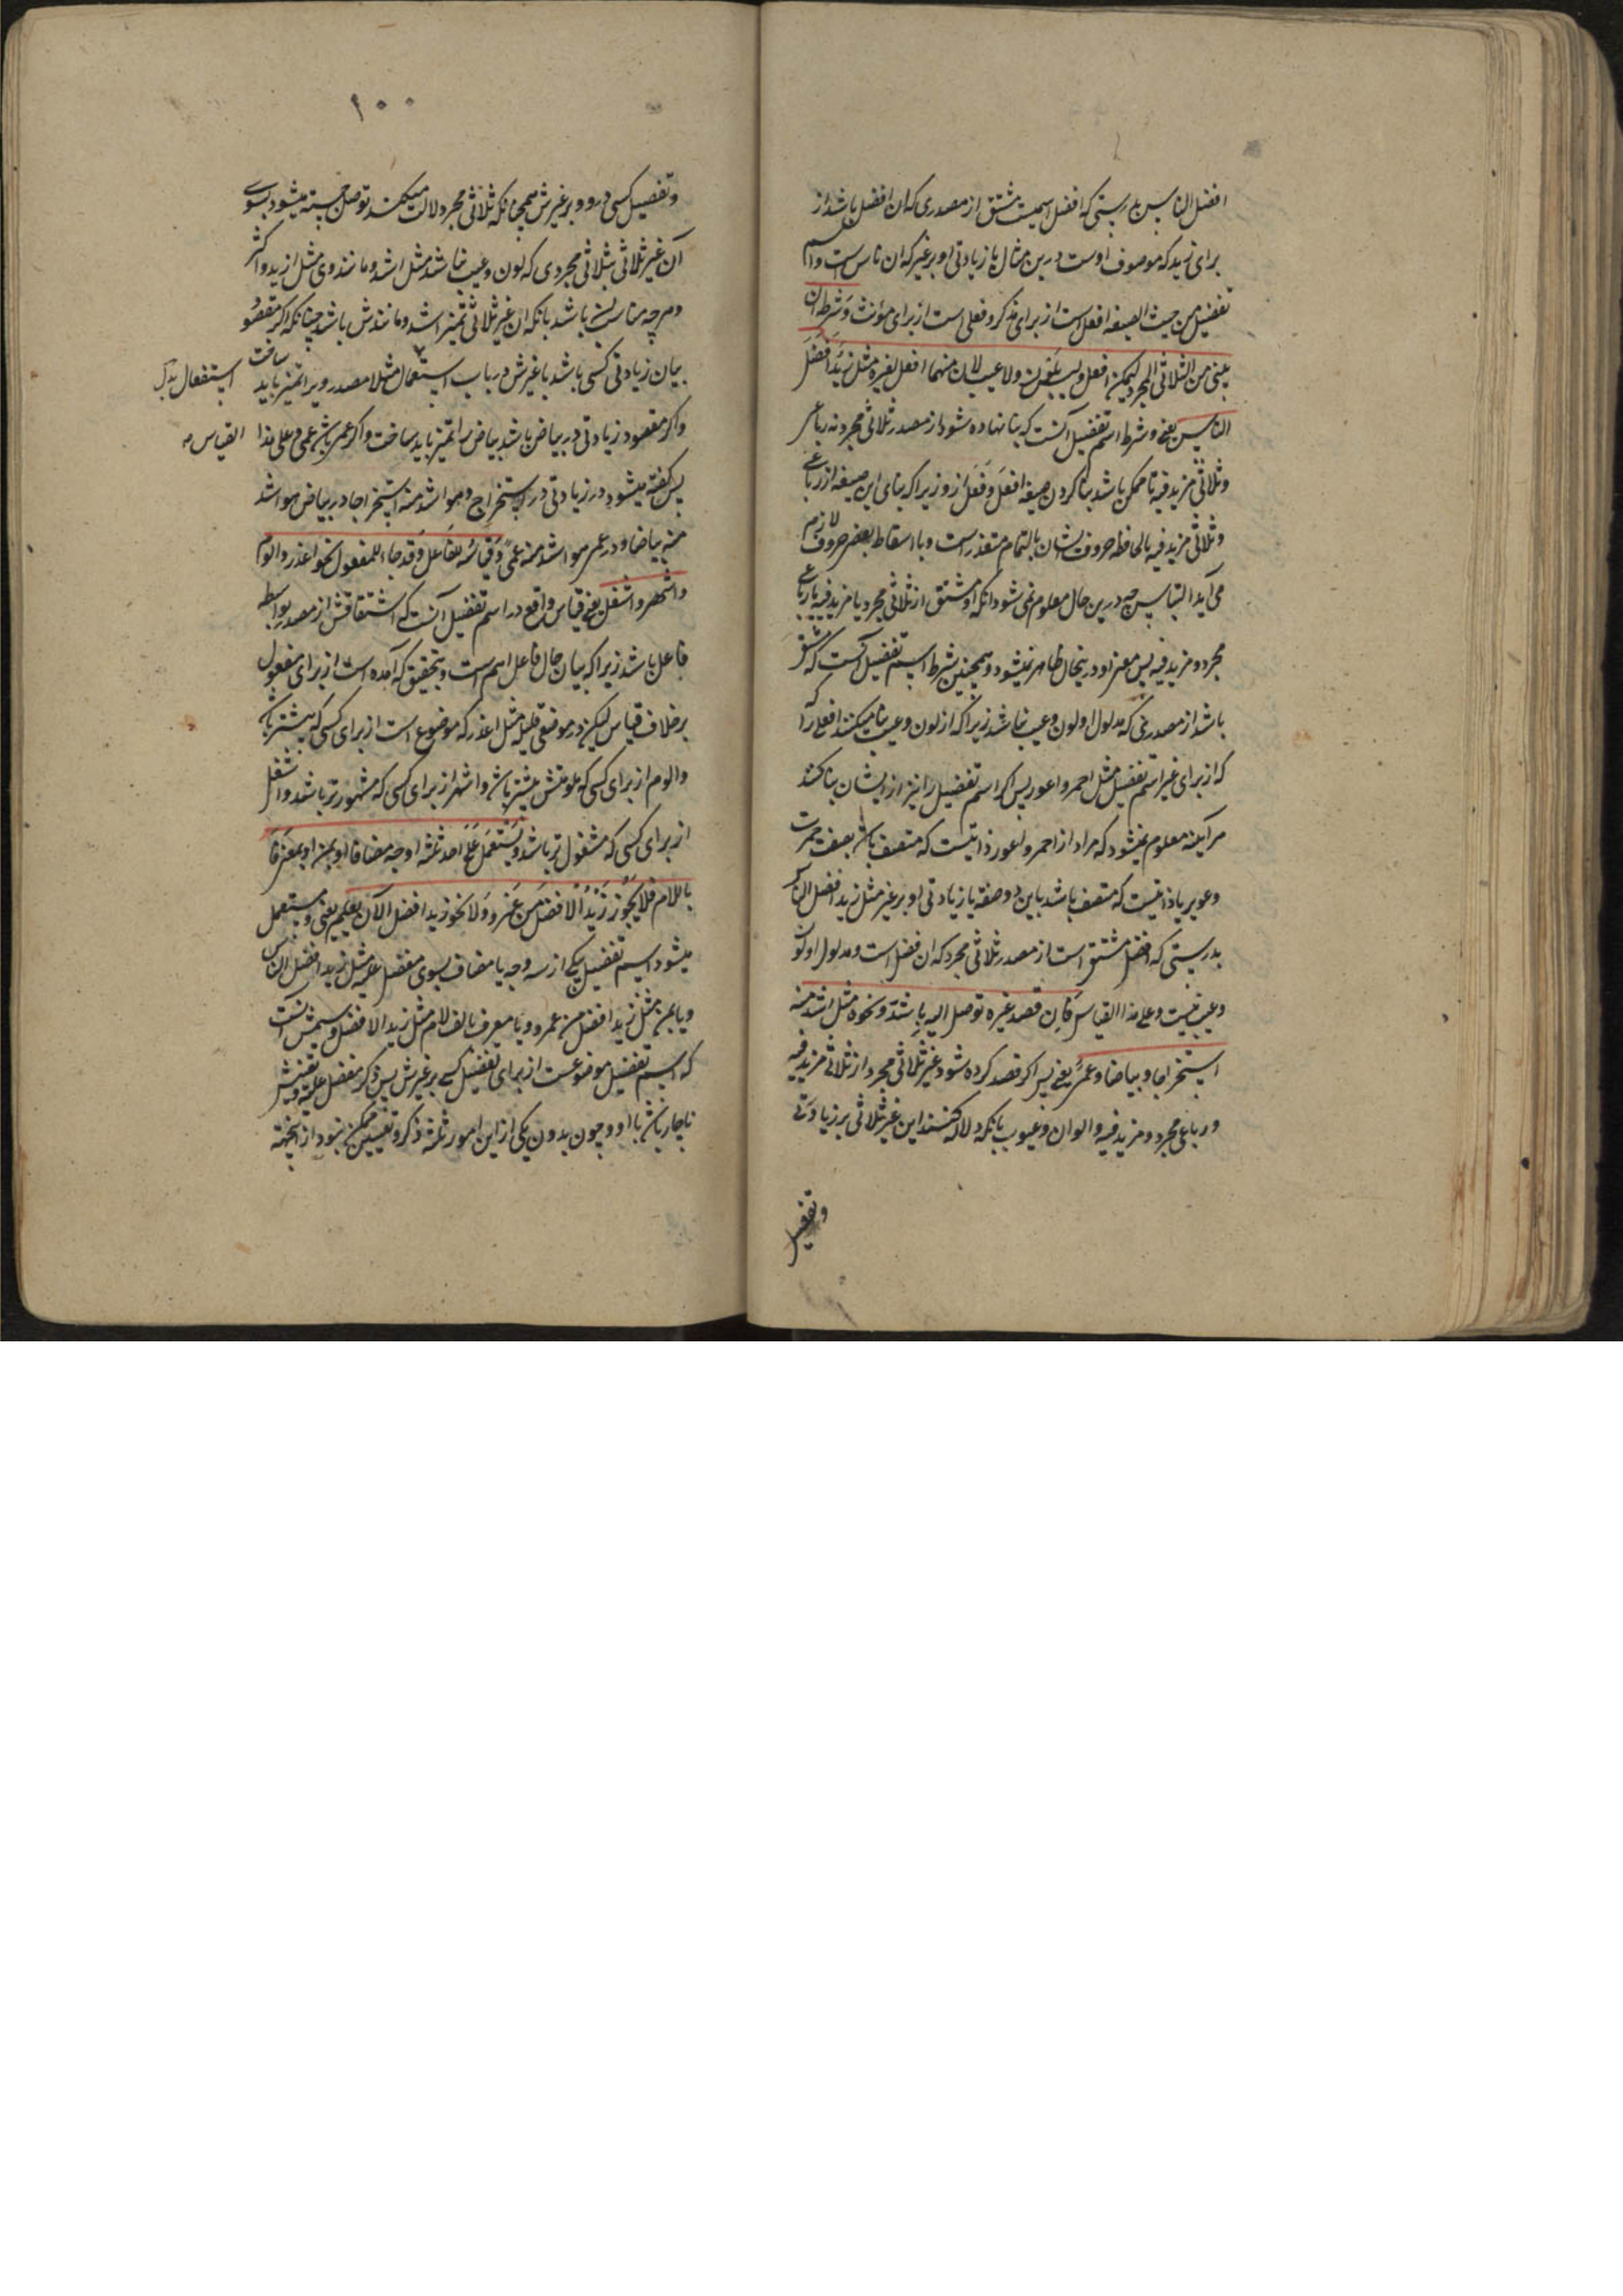 افضل الناس بدرستی که افضل اسمیست مشتق از مصدری که ان افضل باشد از
برای زید که موصوف اوست درین مثال با زیادتی او بر غیر که ان ناس است و اسم
تفضیل من حیث الصیغه افعل است از برای مذکر و فعلی است از برای مؤنث و شرطه ان
یبنی من الثلاثی المجرد لیمکن افعل ولیس بلون ولا عیب لان منهما افعل لغیره مثل زید افضل
الناس یعنی و شرط اسم تفضیل آنست که بنا نهاده شود از مصدر ثلاثی مجرد نه رباعی
و ثلاثی مزید فیه تا ممکن باشد بنا کردن صیغه افعل و فعلی ازو زیرا که بنای این صیغه از رباعی
و ثلاثی مزید فیه بالحافظه حروف ایشان بالتمام متعذر است و با اسقاط بعضی حروف لازم
می آید التباس چه درین حال معلوم نمی شود انکه او مشتق از ثلاثی مجرد یا مزید فیه یا رباعی
مجرد و مزید فیه پس معنی او درینحال ظاهر نمیشود و همچنین شرط اسم تفضیل آنست که مشتق
باشد از مصدری که مدلول او لون و عیب نباشد زیرا که از لون و عیب بنا میکنند افعل را
که از برای غیر اسم تفضیل مثل احمر و اعور پس اگر اسم تفضیل را نیز از ایشان بنا کنند
هر آینه معلوم نمیشود که مراد از احمر و اعور ذاتیست که متصف باشد بصفت حمرت
و عور یا ذاتیست که متصف باشد باین دو صفه با زیادتی او بر غیر مثل زید افضل الناس
بدرستی که افضل مشتق است از مصدر ثلاثی مجرد که ان فضل است و مدلول او لون
و عیب نیست و علی هذا القیاس فان قصد غیره توصل الیه باشد و نحوه مثل اشد منه
استخراجا و بیاضا و عمی یعنی پس اگر قصد کرده شود غیر ثلاثی مجرد از ثلاثی مزید فیه
و رباعی مجرد و مزید فیه و الوان و عیوب بانکه دلالت کنند این غیر ثلاثی بر زیادتی
وتفضیل
۱۰۰
و تفضیل کسی درو و بر غیرش همچنانکه ثلاثی مجرد دلالت میکند توصل جسته میشود بسوی
آن غیر ثلاثی بثلاثی مجردی که لون و عیب نباشد مثل اشد و مانند وی مثل ازید و اکثر
و هر چه مناسب باشد بانکه ان غیر ثلاثی تمیز اشد و مانندش باشد چنانکه اگر مقصود
بیان زیادتی کسی باشد با غیرش در باب استعمال مثلا مصدر ویرا تمیز باید ساخت
استفعال بدل
و اگر مقصود زیادتی در بیاض باشد بیاض را تمیز باید ساخت و اگر عمی باشد عمی و علی هذا القیاس
پس گفته میشود در زیادتی در استخراج هو اشد منه استخراجا و در بیاض هو اشد
منه بیاضا و در عمی هو اشد منه عمی و قیاسه للفاعل وقد جاء للمفعول نحو اعذر و الوم
و اشهر و اشغل یعنی قیاس واقع در اسم تفضیل آنست که اشتقاقش از مصدر بواسطه
فاعل باشد زیرا که بیان حال فاعل اهم است و بتحقیق که آمده است از برای مفعول
بر خلاف قیاس لیکن در موضعی قلیله مثل اعذر که موضوع است از برای کسی که بیشتر
و الوم از برای کسی که ملومتش بیشتر باشد و اشهر از برای کسی که مشهورتر باشد و اشغل
از برای کسی که مشغول تر باشد و یستعمل علی احد ثلثه اوجه مضافا او بمن او معرفا
باللام فلا یجوز زید الافضل من عمرو و لا نحو زید افضل الا ان یعلم یعنی و مستعمل
میشود اسم تفضیل یکی از سه وجه یا مضاف بسوی مفضل علیه مثل زید افضل الناس
و یا بمن مثل زید افضل من عمرو و یا معرف بالف لام مثل زید الافضل
که اسم تفضیل موضوعست از برای تفضیل کسی بر غیرش پس ذکر مفضل علیه
ناچار باشد با او و چون بدون یکی از این امور ثلثه ذکر و تعیین ممکن نبود از اینجهة